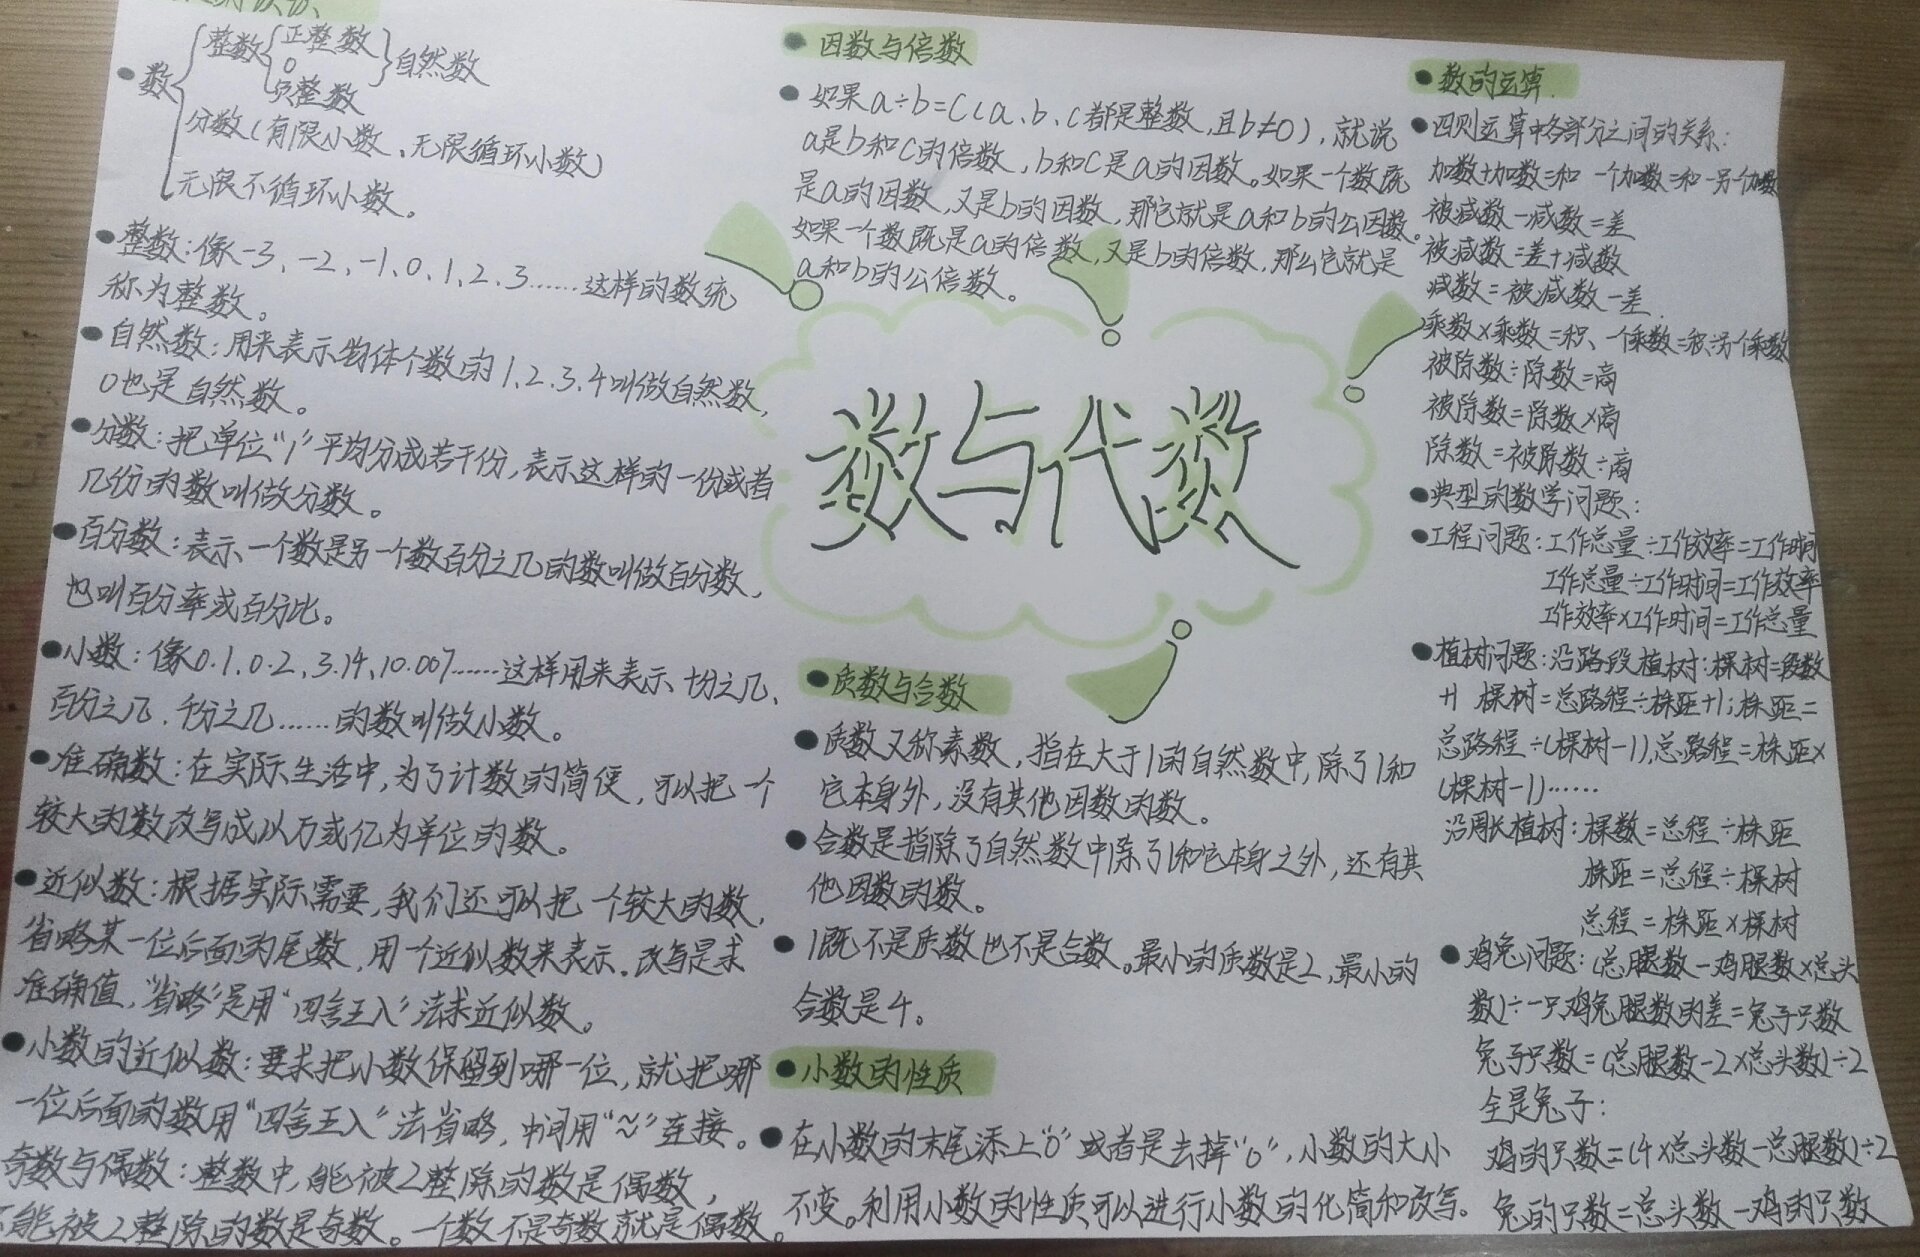 数
整数
正整数
0
负整数
自然数
分数(有限小数、无限循环小数)
无限不循环小数。
整数:像-3、-2、-1、0、1、2、3……这样的数统
称为整数。
自然数:用来表示物体个数的1、2、3、4叫做自然数,
0也是自然数。
分数:把单位“1”平均分成若干份,表示这样的一份或者
几份的数叫做分数。
百分数:表示一个数是另一个数百分之几的数叫做百分数,
也叫百分率或百分比。
小数:像0.1、0.2、3.14、10.007……这样用来表示十分之几、
百分之几、千分之几……的数叫做小数。
准确数:在实际生活中,为了计数的简便,可以把一个
较大的数改写成以万或亿为单位的数。
近似数:根据实际需要,我们还可以把一个较大的数,
省略某一位后面的尾数,用一个近似数来表示。改写是求
准确值,“省略”是用“四舍五入”法求近似数。
小数的近似数:要求把小数保留到哪一位,就把哪
一位后面的数用“四舍五入”法省略,中间用“≈”连接。
奇数与偶数:整数中,能被2整除的数是偶数,
不能被2整除的数是奇数。一个数不是奇数就是偶数。
因数与倍数
如果a÷b=c(a、b、c都是整数,且b≠0),就说
a是b和c的倍数,b和c是a的因数。如果一个数既
是a的因数,又是b的因数,那它就是a和b的公因数。
如果一个数既是a的倍数,又是b的倍数,那么它就是
a和b的公倍数。
数与代数
质数与合数
质数又称素数,指在大于1的自然数中,除了1和
它本身外,没有其他因数的数。
合数是指除了自然数中除了1和它本身之外,还有其
他因数的数。
1既不是质数也不是合数。最小的质数是2,最小的
合数是4。
小数的性质
在小数的末尾添上“0”或者是去掉“0”,小数的大小
不变。利用小数的性质可以进行小数的化简和改写。
数的运算.
四则运算中各部分之间的关系:
加数+加数=和 一个加数=和-另一个加数
被减数-减数=差
被减数=差+减数
减数=被减数-差.
乘数×乘数=积、一个乘数=积÷另一个乘数
被除数÷除数=商
被除数=除数×商
除数=被除数÷商
典型的数学问题:
工程问题:工作总量÷工作效率=工作时间
工作总量÷工作时间=工作效率
工作效率×工作时间=工作总量
植树问题:沿路段植树:棵树=段数
+1 棵树=总路程÷株距+1;株距=
总路程÷(棵树-1),总路程=株距×
(棵树-1)……
沿周长植树:棵数=总程÷株距
株距=总程÷棵树
总程=株距×棵树
鸡兔问题:(总腿数-鸡腿数×总头
数)÷一只鸡兔腿数的差=兔子只数
兔子只数=(总腿数-2×总头数)÷2
全是兔子:
鸡的只数=(4×总头数-总腿数)÷2
兔的只数=总头数-鸡的只数